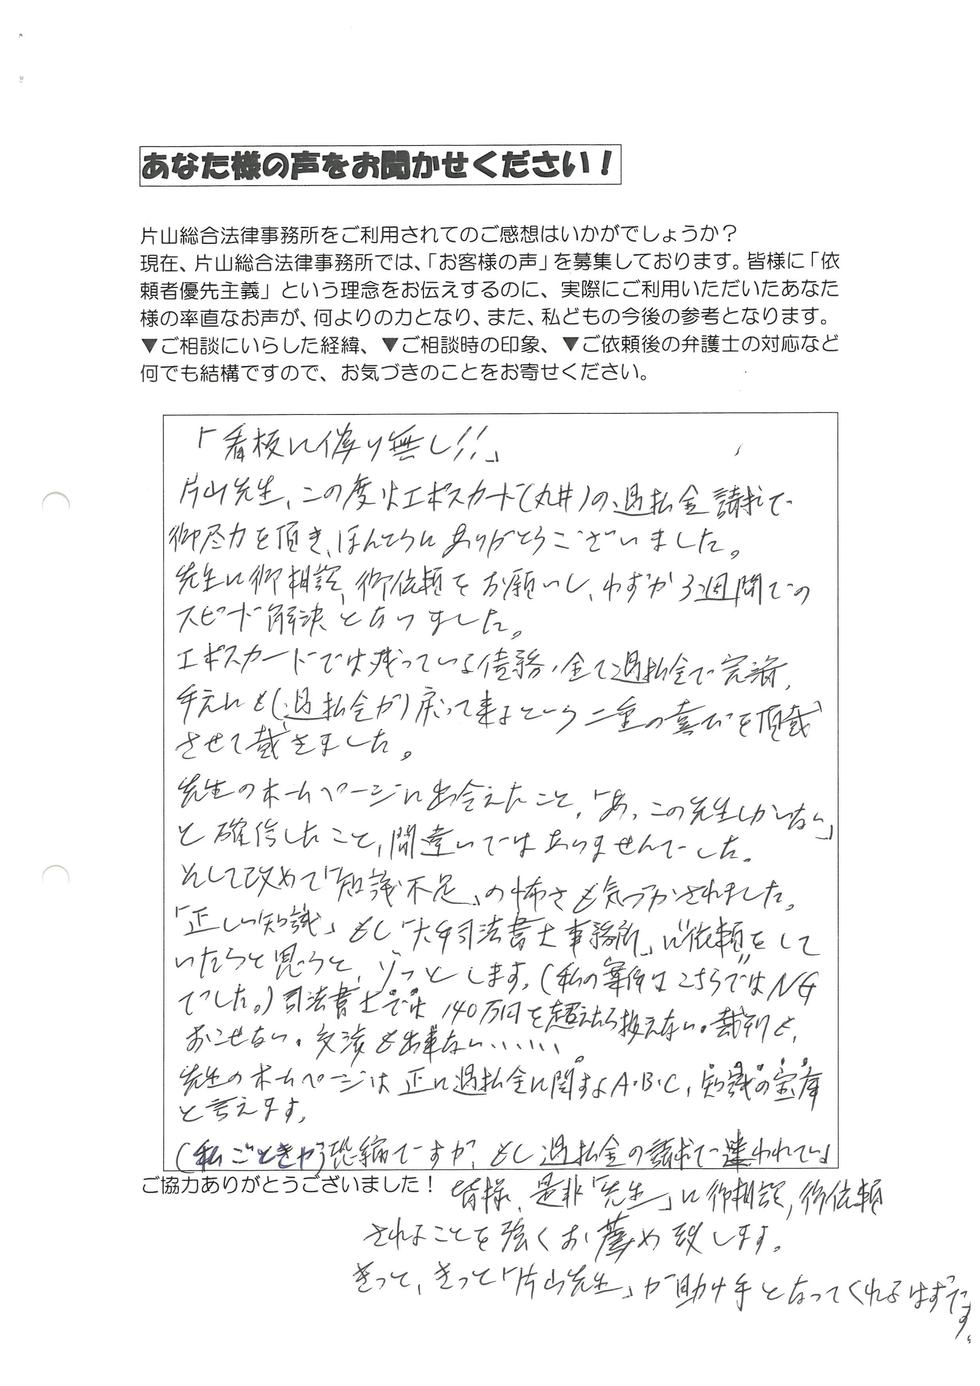 あなた様の声をお聞かせください！
片山総合法律事務所をご利用されてのご感想はいかがでしょうか？
現在、片山総合法律事務所では、「お客様の声」を募集しております。皆様に「依
頼者優先主義」という理念をお伝えするのに、実際にご利用いただいたあなた
様の率直なお声が、何よりの力となり、また、私どもの今後の参考となります。
▼ご相談にいらした経緯、▼ご相談時の印象、▼ご依頼後の弁護士の対応など
何でも結構ですので、お気づきのことをお寄せください。
「看板に偽り無し!!」
片山先生、この度はエポスカード(丸井)の過払金請求で
御尽力を頂き、ほんとうにありがとうございました。
先生に御相談、御依頼をお願いし、わずか3週間での
スピード解決となりました。
エポスカードでは残っている債務、全て過払金で完済、
手元にも(過払金が)戻って来るという二重の喜びを頂戴
させて戴きました。
先生のホームページに出会えたこと、「あ、この先生しかいない」
と確信したこと、間違いではありませんでした。
そして改めて「知識不足」の怖さも気づかされました。
「正しい知識」もし「大手司法書士事務所」に依頼をして
いたらと思うと、ゾッとします。(私の案件はこちらではNG
でした。)司法書士では140万円を超えたら扱えない。裁判も
おこせない。交渉も出来ない……
先生のホームページは正に過払金に関するA・B・C、知識の宝庫
と言えます。
(私ごときが)恐縮ですが、もし過払金の請求で迷われている
ご協力ありがとうございました！
皆様、是非「先生」に御相談、御依頼
されることを強くお薦め致します。
きっと、きっと「片山先生」が助け手となってくれるはずです。